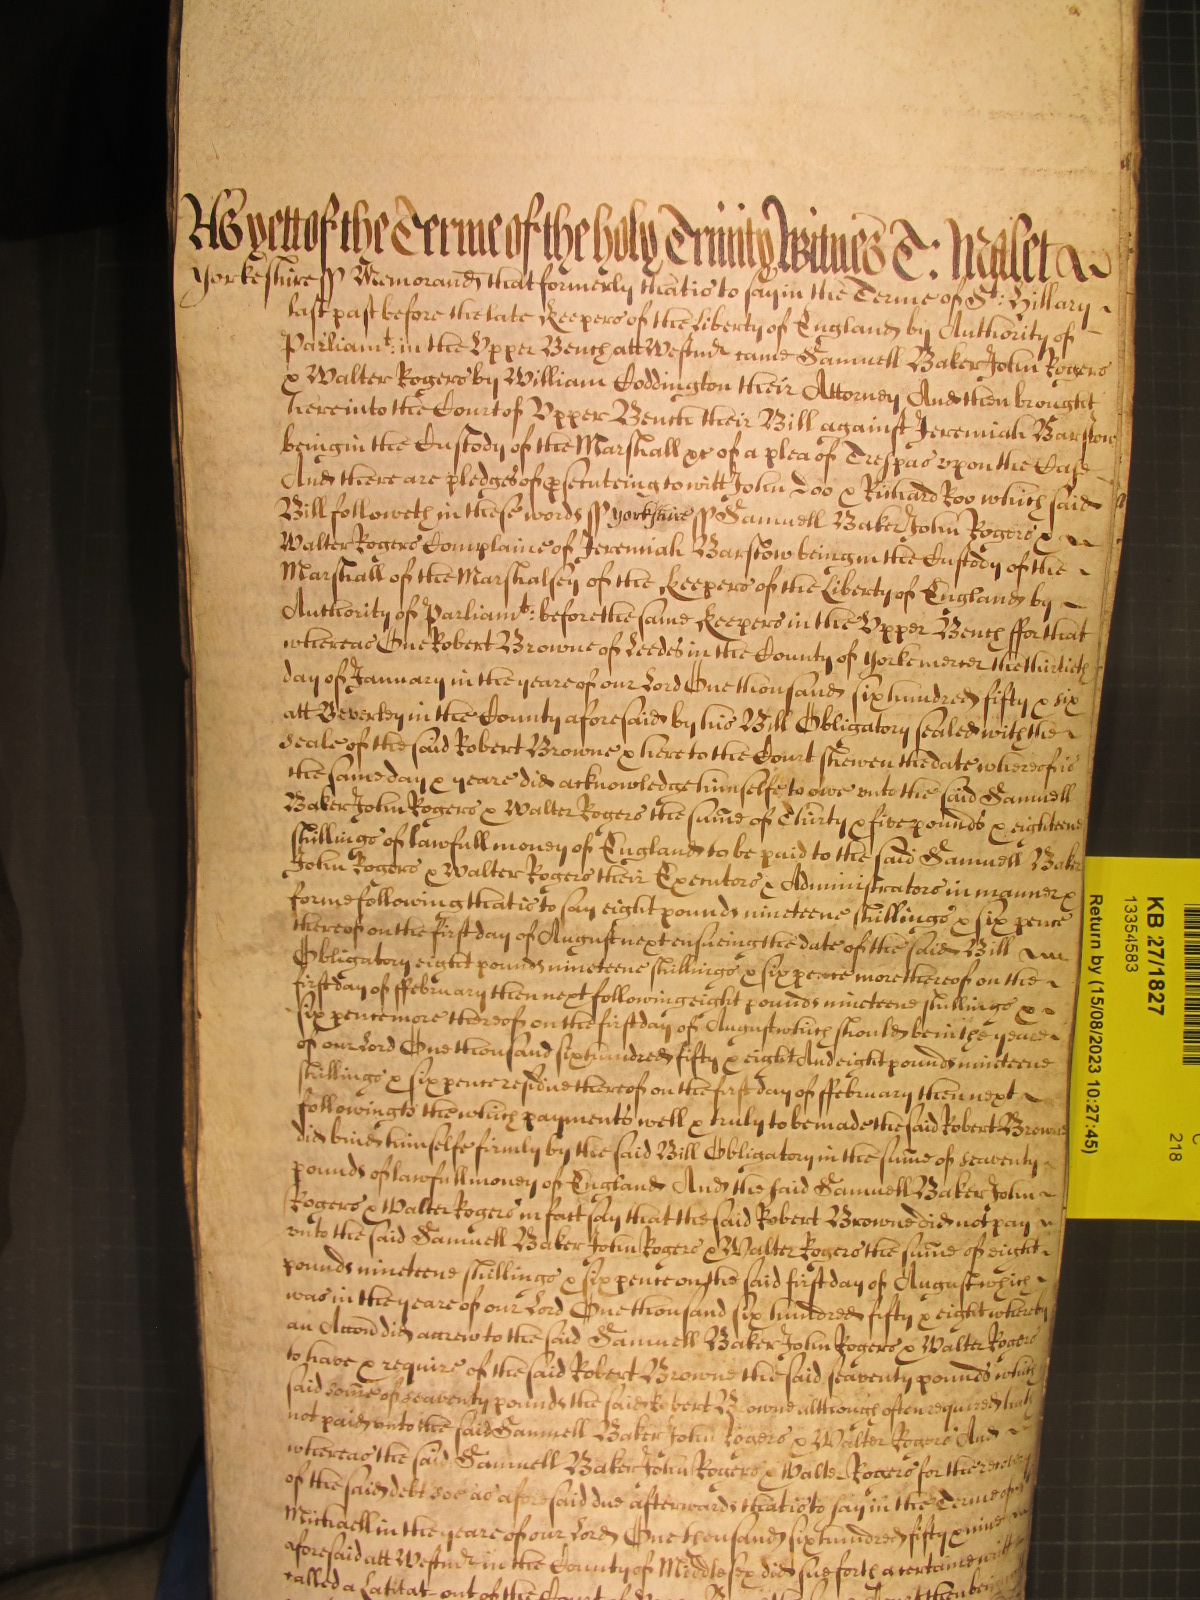 As yett of the Terme of the holy Trinity Witnes T: Malet
Yorkeshire ss Memorand that formerly that is to say in the Terme of St: Hillary
last past before the late Keepers of the Liberty of England by Authority of
Parliamt: in the Upper Bench att Westmr came Samuell Baker John Rogers
& Walter Rogers by William Coddington their Attorney And then brought
here into the Court of Upper Bench their Bill against Jeremiah Barstow
being in the Custody of the Marshall &c of a plea of Trespas upon the Case
And there are pledges of psecuteing to witt John Doo & Richard Roo which said
Bill followeth in these words ss Yorkshire ss Samuell Baker John Rogers &
Walter Rogers Complaine of Jeremiah Barstow being in the Custody of the
Marshall of the Marshalsey of the Keepers of the Liberty of England by
Authority of Parliamt: before the same Keepers in the Upper Bench ffor that
whereas One Robert Browne of Leedes in the County of Yorke mercer the thirtieth
day of January in the yeare of our Lord One thousand six hundred fifty & six
att Beverley in the County aforesaid by his Bill Obligatory sealed with the
seale of the said Robert Browne & here to the Court shewen the date whereof is
the same day & yeare did acknowledge himselfe to owe unto the said Samuell
Baker John Rogers & Walter Rogers the sume of Thirty & five pounds & eighteene
shillings of lawfull money of England to be paid to the said Samuell Baker
John Rogers & Walter Rogers their Executors & Administrators in manner &
forme following that is to say eight pounds nineteene shillings & six pence
thereof on the first day of August next ensueing the date of the said Bill
Obligatory eight pounds nineteene shillings & six pence more thereof on the
first day of ffebruary then next following eight pounds nineteene shillings &
six pence more thereof on the first day of August which should be in the yeare
of our Lord One thousand six hundred fifty & eight And eight pounds nineteene
shillings & six pence residue thereof on the first day of ffebruary then next
following to the which payments well & truly to be made the said Robert Browne
did bind himselfe firmly by the said Bill Obligatory in the sume of seaventy
pounds of lawfull money of England And the said Samuell Baker John
Rogers & Walter Rogers in fact say that the said Robert Browne did not pay
unto the said Samuell Baker John Rogers & Walter Rogers the sume of eight
pounds nineteene shillings & six pence on the said first day of August which
was in the yeare of our Lord One thousand six hundred fifty & eight whereby
an Accon did accrew to the said Samuell Baker John Rogers & Walter Rogers
to have & require of the said Robert Browne the said seaventy pounds which
said some of seaventy pounds the said Robert Browne although often required hath
not paid unto the said Samuell Baker John Rogers & Walter Rogers And
whereas the said Samuell Baker John Rogers & Walter Rogers for the recovery
of the said debt soe as aforesaid due afterwards that is to say in the Terme of St
Michaell in the yeare of our Lord One thousand six hundred fifty & nine
aforesaid att Westmr in the County of Middlesex did sue forth a certaine writt
called a Latitat out of the Court of
KB 27/1827
13354583
Return by (15/08/2023 10:27:45)
218